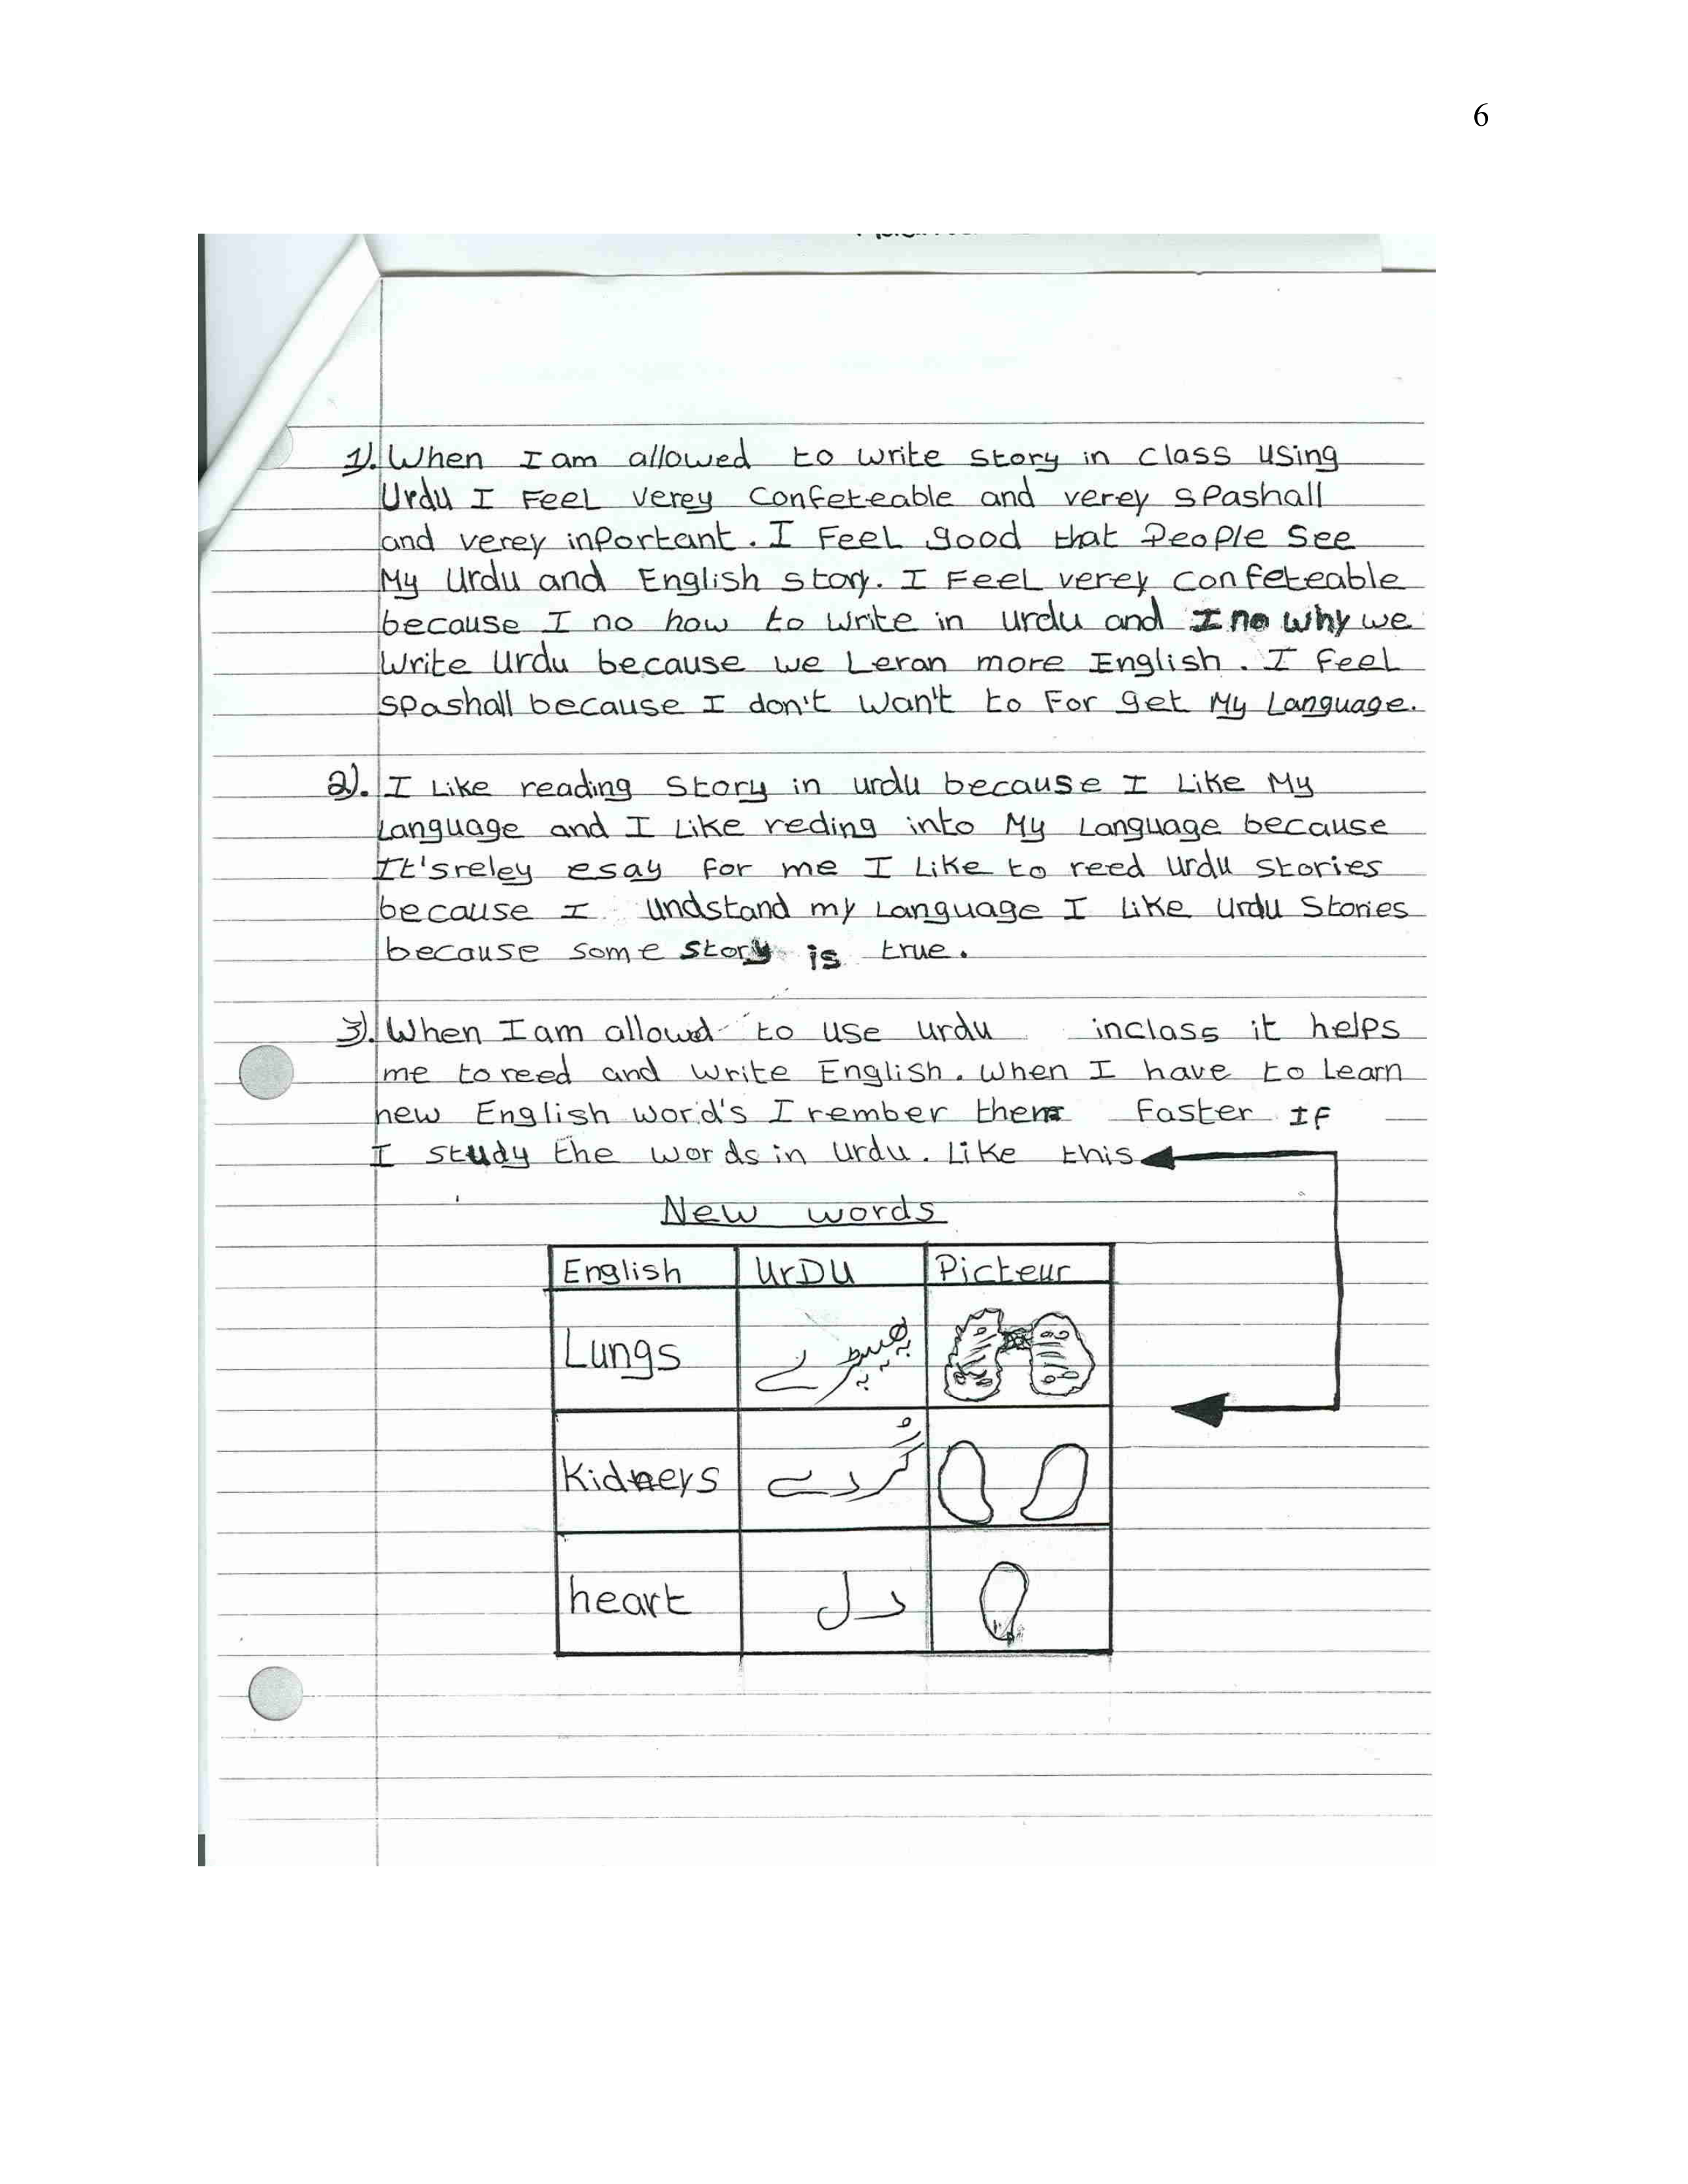 6
1). When I am allowed to write story in class using
Urdu I Feel verey confeteable and verey spashall
and verey inportant. I Feel good that People see
My Urdu and English story. I Feel verey confeteable
because I no how to write in urdu and I no why we
write urdu because we Leran more English. I feel
spashall because I don't wan't to For get My Language.
2). I Like reading story in urdu because I Like My
Language and I Like reding into My Language because
It's reley esay for me I Like to reed urdu stories
because I undstand my Language I Like urdu stories
because some story is true.
3). When I am allowd to use urdu inclass it helps
me to reed and write English. when I have to Learn
new English word's I rember them Faster IF
I study the words in urdu. Like this
New words
English UrDU Picteur
Lungs پھیپڑے
Kidneys گُردے
heart دل